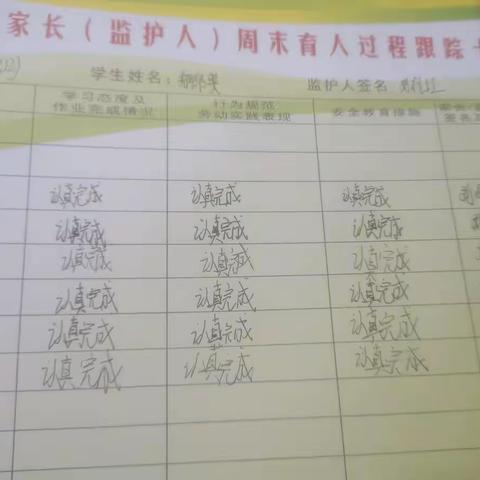 家长（监护人）周末育人过程跟踪
学生姓名： 监护人签名
学习态度及 行为规范 安全教育措施
作业完成情况 劳动实践表现
认真完成 认真完成 认真完成
认真完成 认真完成 认真完成
认真完成 认真完成 认真完成
认真完成 认真完成 认真完成
认真完成 认真完成 认真完成
认真完成 认真完成 认真完成